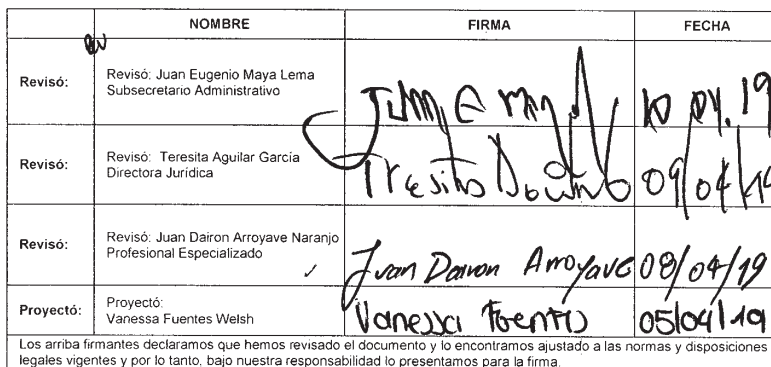 NOMBRE FIRMA FECHA
Revisó: Revisó: Juan Eugenio Maya Lema
Subsecretario Administrativo
10.04.19
Revisó: Revisó: Teresita Aguilar García
Directora Jurídica
09/04/19
Revisó: Revisó: Juan Dairon Arroyave Naranjo
Profesional Especializado
Juan Dairon Arroyave 08/04/19
Proyectó: Proyectó:
Vanessa Fuentes Welsh
Vanessa Fuentes 05/04/19
Los arriba firmantes declaramos que hemos revisado el documento y lo encontramos ajustado a las normas y disposiciones
legales vigentes y por lo tanto, bajo nuestra responsabilidad lo presentamos para la firma.